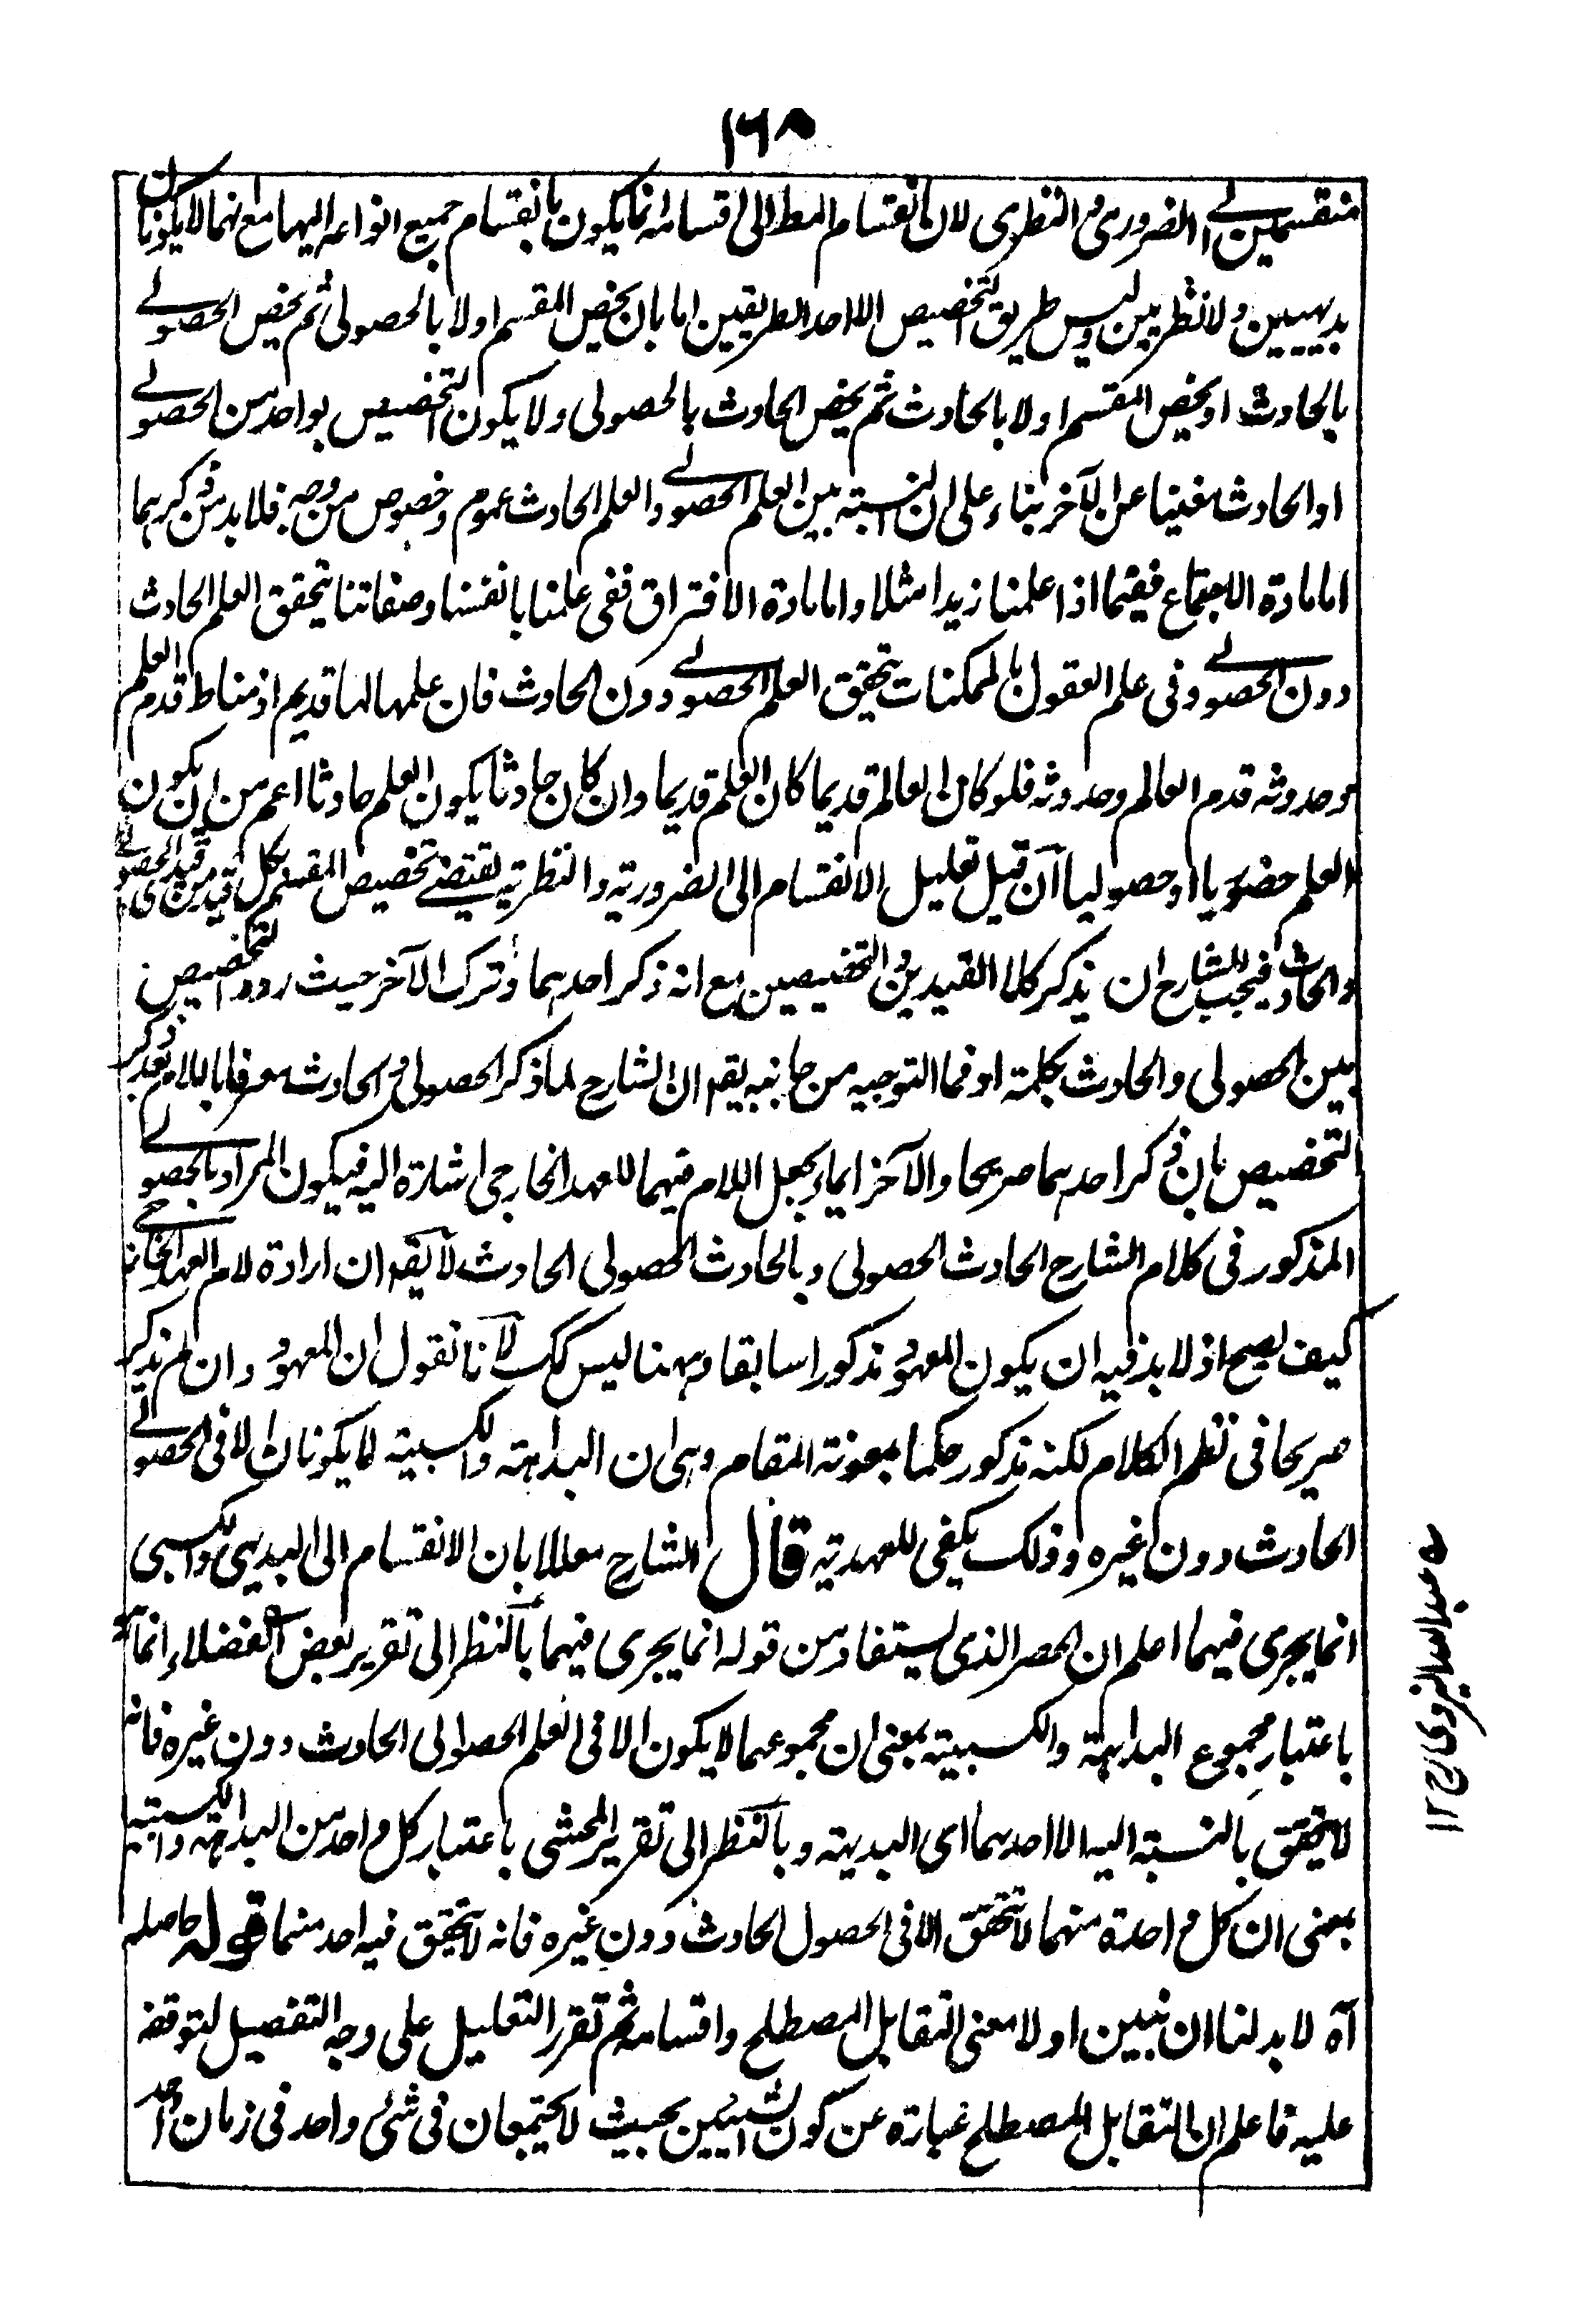 ١٦٨
منقسمين الى الضرورى والنظرى لان انقسام المط الى اقسامه انما يكون بانقسام جميع انواعه اليها مع انهما لا يكونان
بديهيين ولا نظريين وليس طريق التخصيص الا احد الطريقين اما بان يخص المقسم اولا بالحصولى ثم يخص الحصولى
بالحادث او يخص المقسم اولا بالحادث ثم يخص الحادث بالحصولى ولا يكون التخصيص بواحد من الحصولى
او الحادث مغنيا عن الآخر بناء على ان النسبة بين العلم الحصولى والعلم الحادث عموم وخصوص من وجه فلا بد من ذكرهما
اما مادة الاجتماع ففيما اذا علمنا زيدا مثلا واما مادة الافتراق ففى علمنا بانفسنا وصفاتنا تحقق العلم الحادث
دون الحصولى وفى علم العقول بالممكنات يتحقق العلم الحصولى دون الحادث فان علمها لها قديم اذ مناط قدم العلم
وحدوثه قدم العالم وحدوثه فلو كان العالم قديما كان العلم قديما وان كان حادثا يكون العلم حادثا اعم من ان يكون
العلم حضوريا او حصوليا آن قيل تعليل الانقسام الى الضرورية والنظرية يقتضى تخصيص المقسم بكل قيد من قيدى الحصولى
والحادث فيجب للشارح ان يذكر كلا القيدين والتخصيصين مع انه ذكر احدهما وترك الآخر حيث ردد التخصيص
بين الحصولى والحادث بكلمة او فما التوجيه من جانبه يقم ان الشارح لما ذكر الحصولى والحادث معرفا باللام بعد ذكر
التخصيص بان ذكر احدهما صريحا والآخر ايماء بجعل اللام فيهما للعهد الخارجى اشارة اليه فيكون المراد بالحصولى
المذكور فى كلام الشارح الحادث الحصولى وبالحادث الحصولى الحادث لا يقم ان ارادة لام العهد الخارجى
كيف يصح اذ لا بد فيه ان يكون المعهود مذكورا سابقا وههنا ليس كك لآنا نقول ان المعهود وان لم يذكر
صريحا فى نظم الكلام لكنه مذكور حكما بمعونة المقام وهى ان البداهة والكسبية لا يكونان الا فى الحصولى
الحادث دون غيره وذلك يكفى للعهدية قال الشارح معللا بان الانقسام الى البديهى والكسبى
انما يجرى فيهما اعلم ان الحصر الذى يستفاد من قوله انما يجرى فيهما بالنظر الى تقرير بعض الفضلاء انما
باعتبار مجموع البداهة والكسبية بمعنى ان مجموعهما لا يكون الا فى العلم الحصولى الحادث دون غيره فانه
لا يتحقق بالنسبة اليه الا احدهما اى البديهة وبالنظر الى تقرير المحشى باعتبار كل واحد من البداهة والكسبية
بمعنى ان كل واحدة منهما لا تتحقق الا فى الحصول الحادث دون غيره فانه لا يتحقق فيه احد منهما قوله حاصله
آه لا بد لنا ان نبين اولا معنى التقابل المصطلح واقسامه ثم تقرر التعليل على وجه التفصيل لتوقفه
عليه فاعلم ان التقابل المصطلح عبارة عن كون الشيئين بحيث لا يجتمعان فى شئ واحد فى زمان واحد